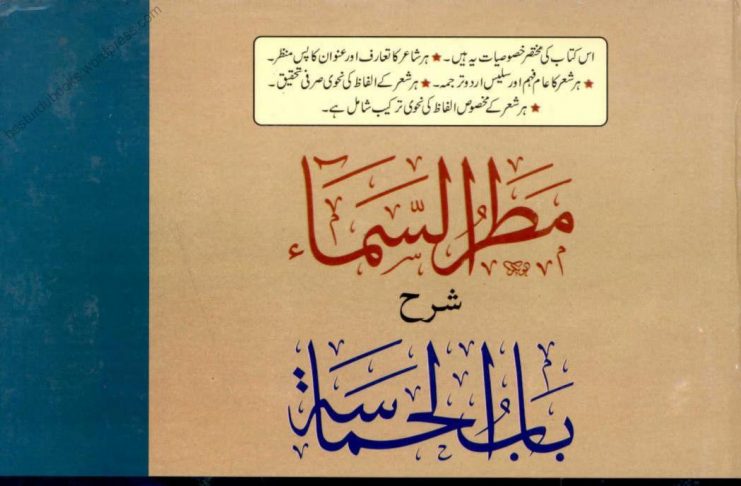 اس کتاب کی مختصر خصوصیات یہ ہیں۔ ★ ہر شاعر کا تعارف اور عنوان کا پس منظر۔
★ ہر شعر کا عام فہم اور سلیس اردو ترجمہ۔ ★ ہر شعر کے الفاظ کی نحوی صرفی تحقیق۔
★ ہر شعر کے مخصوص الفاظ کی نحوی ترکیب شامل ہے۔
مَطَرُ السَّمَآء
شرح
بَابُ الحماسة
besturdubooks.wordpress.com